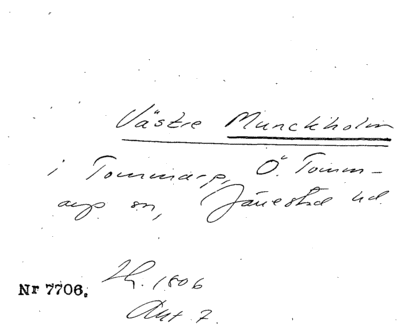 Västre Munckholm
i Tommarp, Ö. Tomm-
arp sn, Järrestad hd.
Lh. 1806
Nr 7706.
Akt 7.